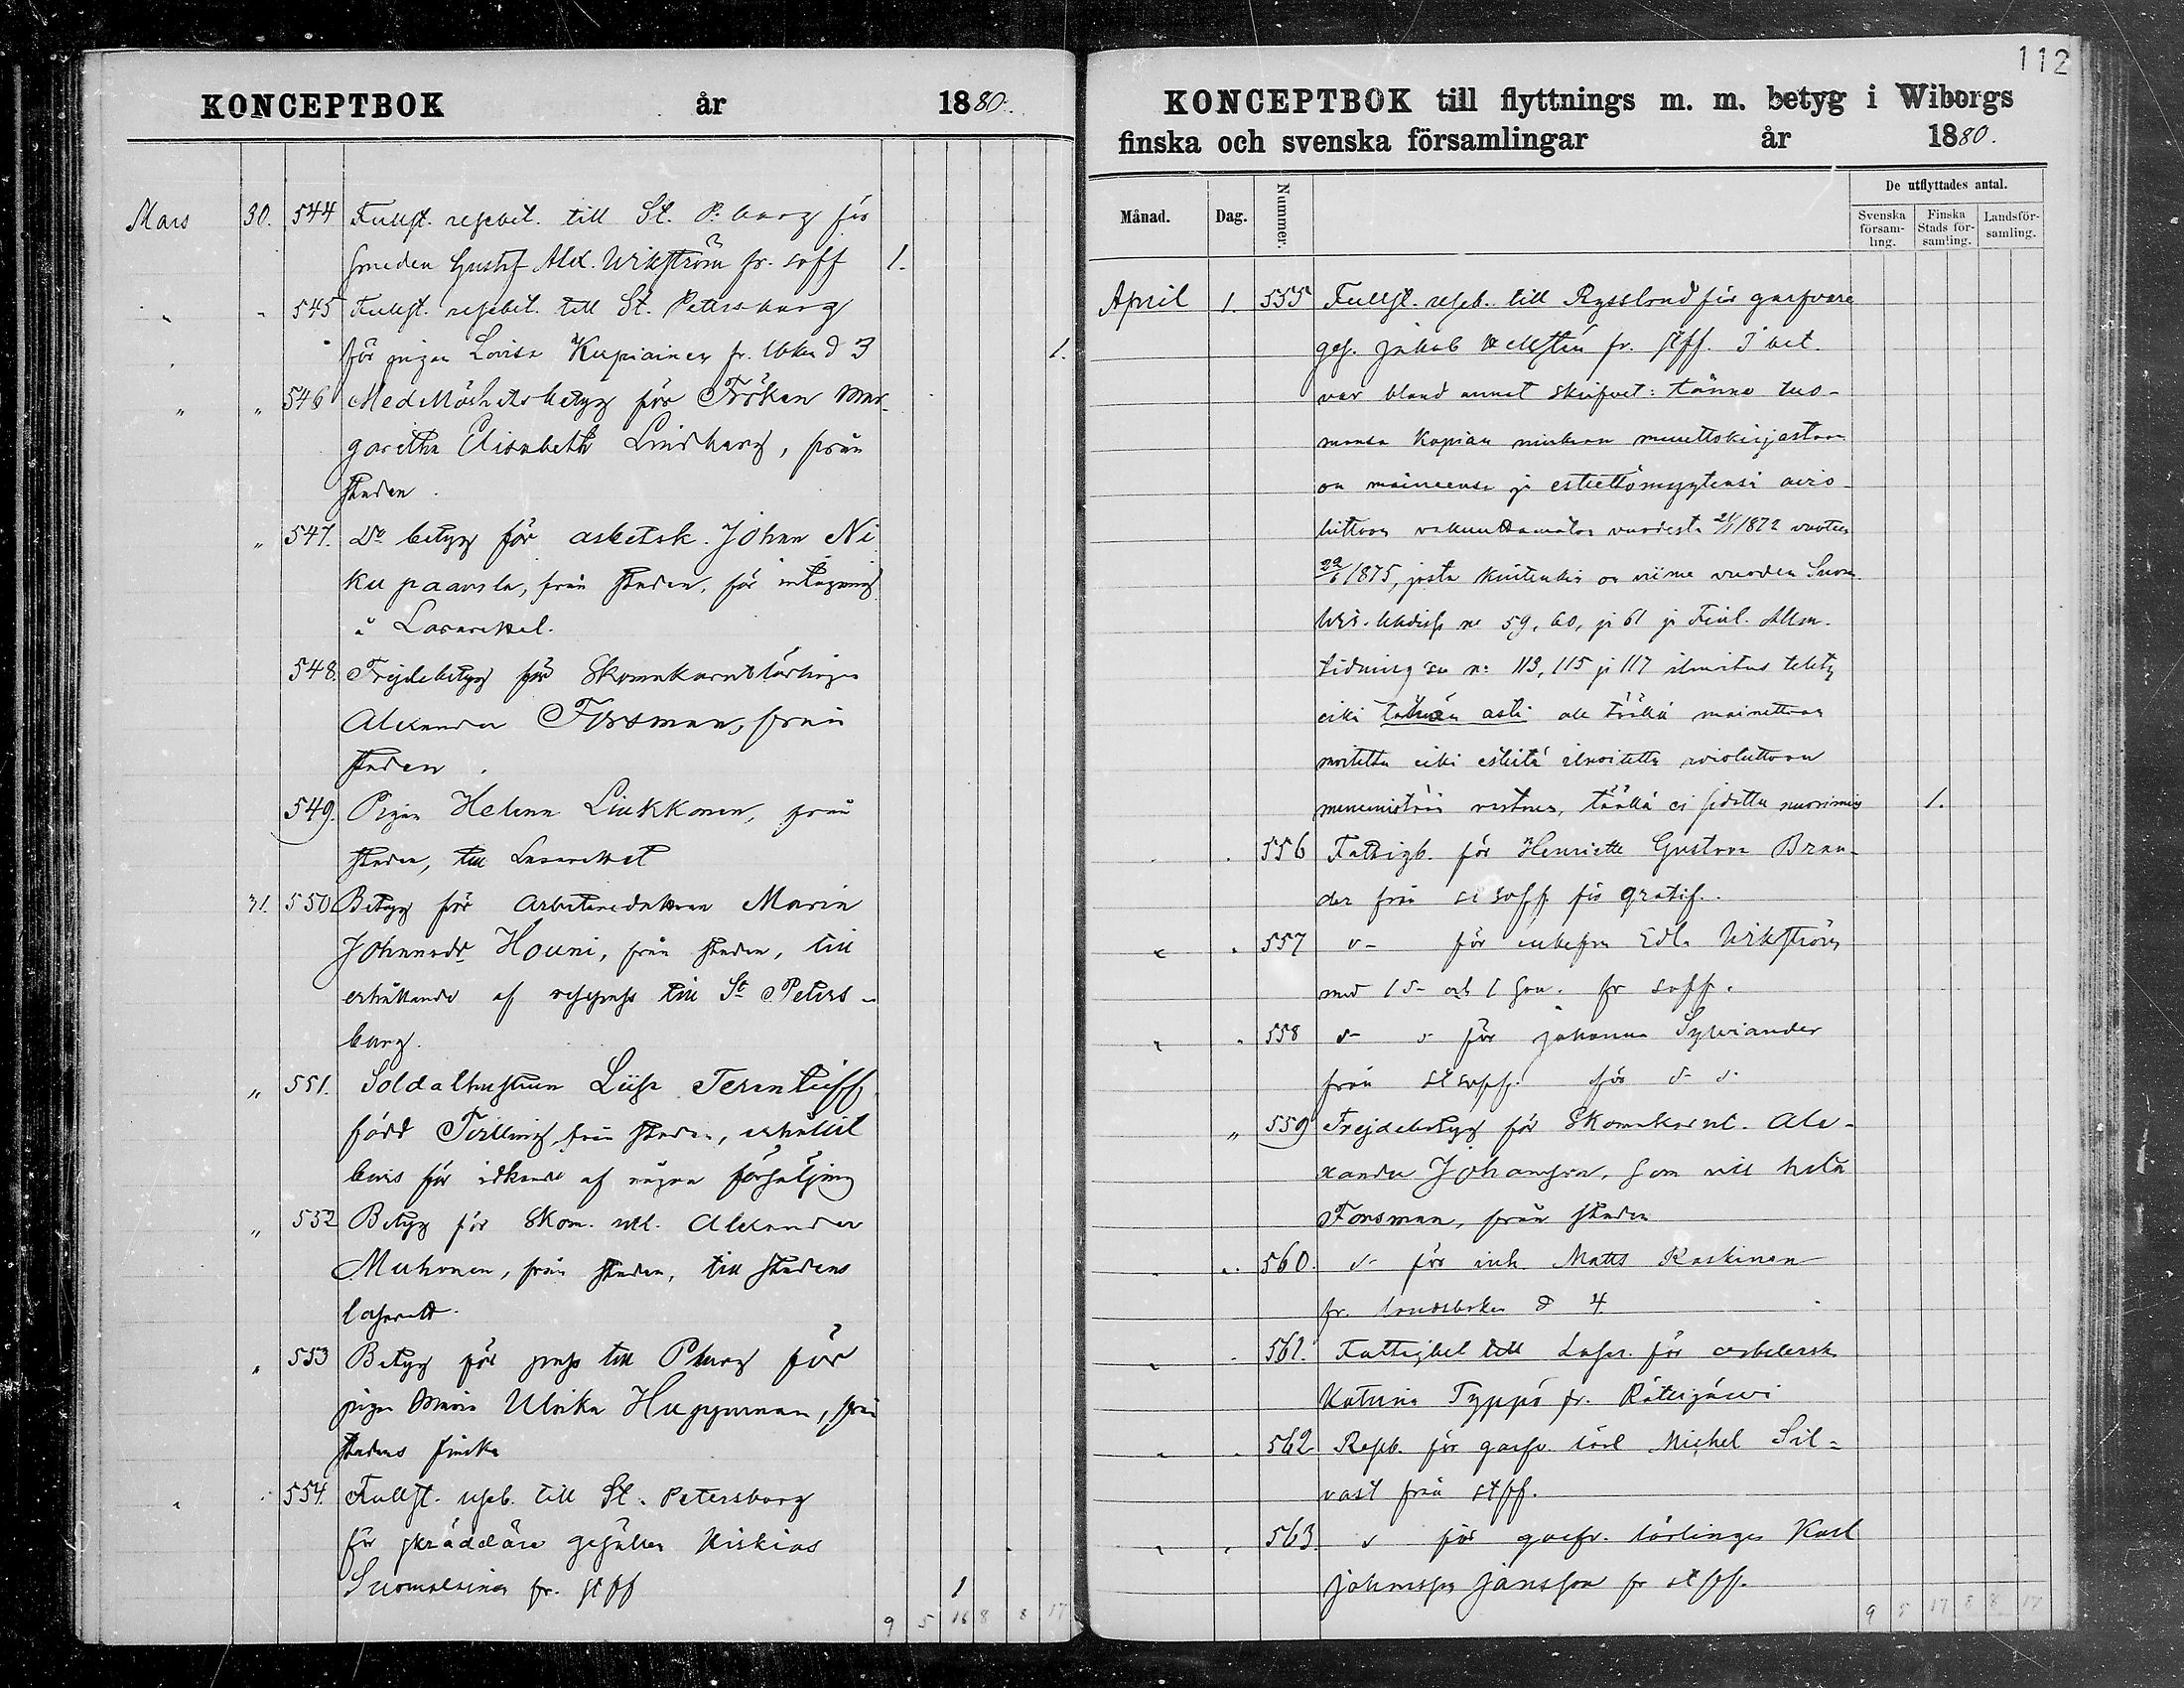 KONCEPTBOK år 1880.
Mars 30. 544 Fullst. resebet. till St. P. burg för
smeden Gustaf Alex. Wikström fr. soff 1.
" " 545 Fullst. resebet. till St. Petersburg
för pigan Lovisa Kupiainen fr. lbkn d 3 1.
" " 546 Medellöshetsbetyg för Fröken Mar-
garitha Elisabeth Lindberg, från
staden.
" 547. Do betyg för arbetsk. Johan Ni
kupaavola, från staden, för intagning
å Lasarettet.
548. Frejdebetyg för Skomakarelärlingen
Alexander Forsman, från
staden.
549. Pigan Helena Liukkonen, från
staden, till Lasarettet
31. 550. Betyg för Arbetaredottren Maria
Johansdr Houni, från staden, till
erhållande af respass till St Peters-
burg.
" 551. Soldathustrun Liisa Terentieff,
född Tirilling, från staden,
bevis för idkande af någon försäljning
" 552 Betyg för Skom. Alexander
Muhonen, från staden, till stadens
lasarett.
" 553 Betyg för pass till Pburg för
pigan Maria Ulrika Huppunen, från
stadens finska
" " 554. Fullst. reseb. till St. Petersburg
för skräddare gesällen Kiskias
Suomalainen fr. stff 1
9 5 16 8 8 17
112
KONCEPTBOK till flyttnings m. m. betyg i Wiborgs
finska och svenska församlingar år 1880.
Månad. Dag. Nummer. De utflyttades antal.
Svenska församling. Finska Stadsförsamling. Landsförsamling.
April 1. 555 Fullst. reseb. till Ryssland för garfvare
ges. Jakob fr. stff. I bet.
var bland annat skrifvet: tänne tuo-
mansa kopian mukaan muuttokirjastaan
on maineensa ja esteettömyytensä avio-
liittoon vakuuttamaton vuodesta 21/1 1872 vuoteen
22/6 1875, josta kuitenkin on viime vuoden Suom.
Wir. lehdissä no 59, 60, ja 61 ja Finl. Allm.
tidning'ssa n: 113, 115 ja 117 ilmoitus tehty
eikä tähän asti ole täällä mainettaan
moitittu eikä esteitä ilmoitettu avioliittoon
menemistään vastaan, täällä ei 1.
" " 556 Fattigb. för Henriette Gustava Bran-
der från soff för gratif.
" " 557 d- för enkefru Edla Wikström
med 1 d- och 1 son. fr soff.
" " 558 d- d för Johanna Sylviander
från soff. för d- d
" 559 Frejdebetyg för Skomakarel. Ale-
xander Johansson, som vill heta
Forsman, från staden
" " 560. d- för inh. Matts Kaskinen
fr. landsboken d 4
" " 561. Fattigbet till Lasar. för arbetersk.
Katarina Typpö fr. Rättijärvi
" " 562 Reseb. för garfv. lärl Michel Sil-
vast från stff.
" " 563. d för garfv. lärlingen Karl
Johansson Jansson fr stff.
9 5 17 8 8 17